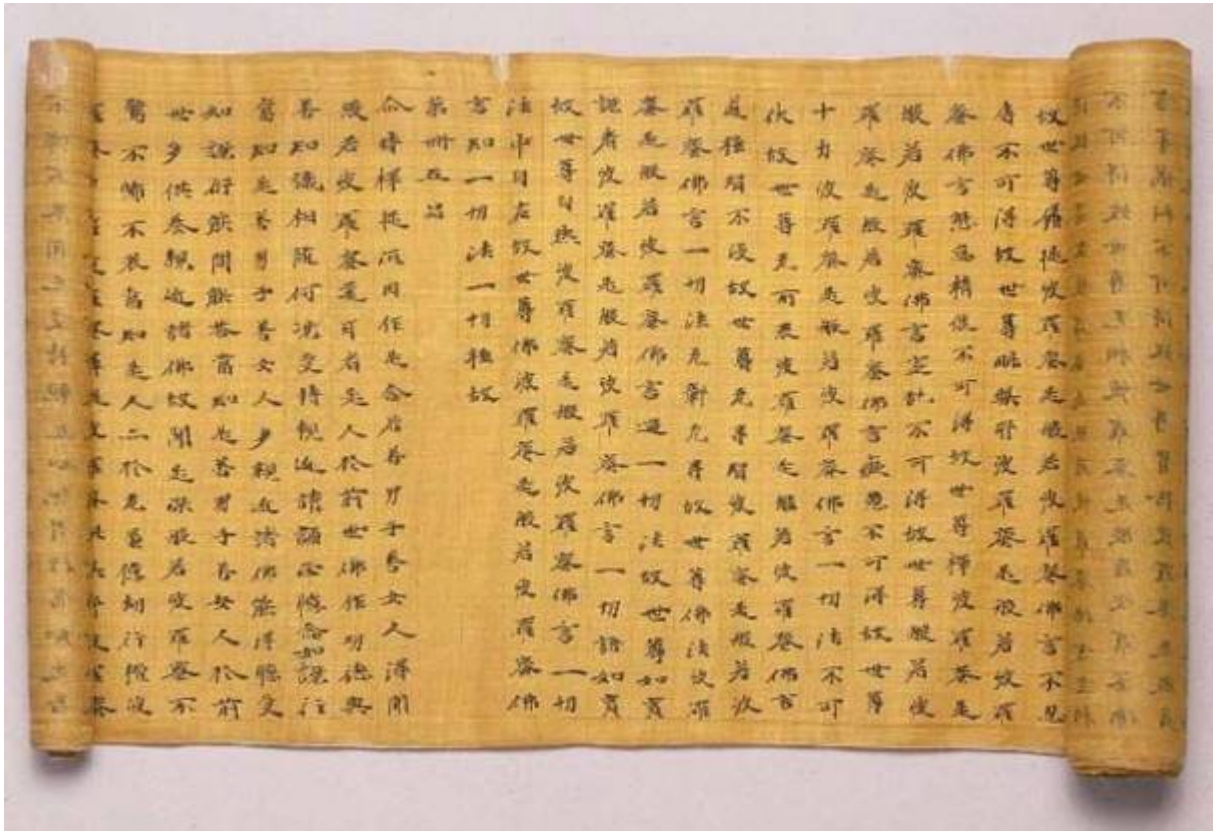 故世尊羼提波羅蜜是般若波羅蜜佛言不忍
辱不可得故世尊毗梨耶波羅蜜是般若波羅
蜜佛言懈怠精進不可得故世尊禪波羅蜜是
般若波羅蜜佛言定乱不可得故世尊般若波
羅蜜是般若波羅蜜佛言癡慧不可得故世尊
十力波羅蜜是般若波羅蜜佛言一切法不可
伏故世尊无所畏波羅蜜是般若波羅蜜佛言
道種智不沒故世尊无㝵智波羅蜜是般若波
羅蜜佛言一切法无鄣无㝵故世尊佛法波羅
蜜是般若波羅蜜佛言過一切法故世尊如實
說者波羅蜜是般若波羅蜜佛言一切語如實
故世尊自然波羅蜜是般若波羅蜜佛言一切
法中自在故世尊佛波羅蜜是般若波羅蜜佛
言知一切法一切種故
第卌五品
尒時釋提桓因作是念若善男子善女人得聞
般若波羅蜜逕耳者是人於前世佛作功德與
善知識相隨何況受持親近讀誦正憶念如說行
當知是善男子善女人多親近諸佛能得聽受
如說行能問能答當知是善男子善女人於前
世多供養親近諸佛故聞是深般若波羅蜜不
驚不怖不畏當知是人亦於无量億劫行檀波